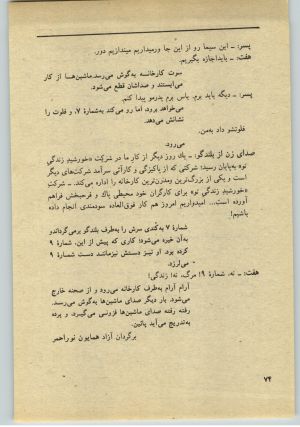 پسر: ـ این سیما رو از این جا ورمیداریم میندازیم دور.
هفت: ـ بایداجازه بگیریم.
سوت کارخانه به‌گوش می‌رسد.ماشین‌ها از کار
می‌ایستند و صداشان قطع می‌شود.
پسر: ـ دیگه باید برم. باس برم پدرمو پیدا کنم.
می‌خواهد برود، اما رو می‌کند به‌شمارهٔ ۷، و فلوت را
نشانش می‌دهد.
فلوتشو داد به‌من.
می‌رود.
صدای زن از بلندگو: ـ یک روز دیگر از کار ما در شرکت «خورشید زندگی
نو» به‌پایان رسید؛ شرکتی که از پاکیزگی و کارآئی سرآمد شرکت‌های دیگر
است و یکی از بزرگ‌ترین ومدرن‌ترین کارخانه را اداره می‌کند. ـ شرکت
«خورشید زندگی نو» برای کارگران خود محیطی پاک و فرحبخش فراهم
آورده است... امیدواریم امروز هم کار فوق‌العاده سودمندی انجام داده
باشیم!
شمارهٔ ۷ به‌کُندی سرش را به‌طرف بلندگو برمی‌گرداندو
به‌آن خیره می‌شود؛ کاری که پیش از این، شمارهٔ ۹
کرده بود. او نیز دستش نیزمانند دست شمارهٔ ۹
می‌لرزد.
هفت: ـ نه، شمارهٔ ۹! مرگ، نه! زندگی!
آرام آرام به‌طرف کارخانه می‌رود و از صحنه خارج
می‌شود. بار دیگر صدای ماشین‌ها به‌گوش می‌رسد.
رفته رفته صدای ماشین‌ها فزونی می‌گیرد، و پرده
به‌تدریج می‌آید پائین.
برگردان آزاد همایون نوراحمر
۷۴